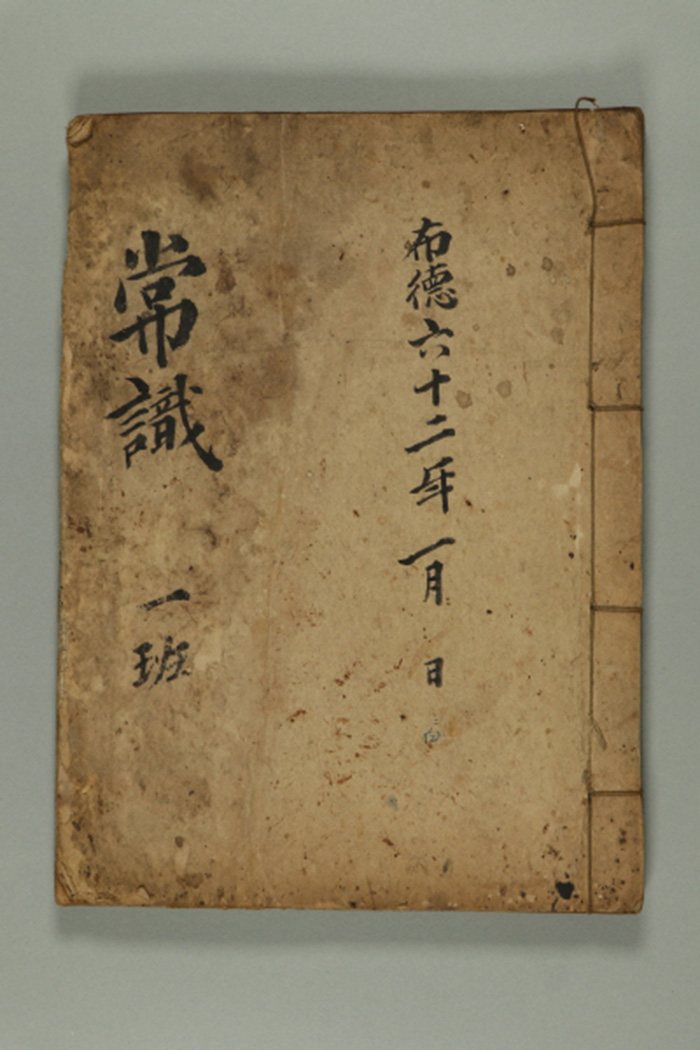 布德六十二年 一月 日
常識 一班